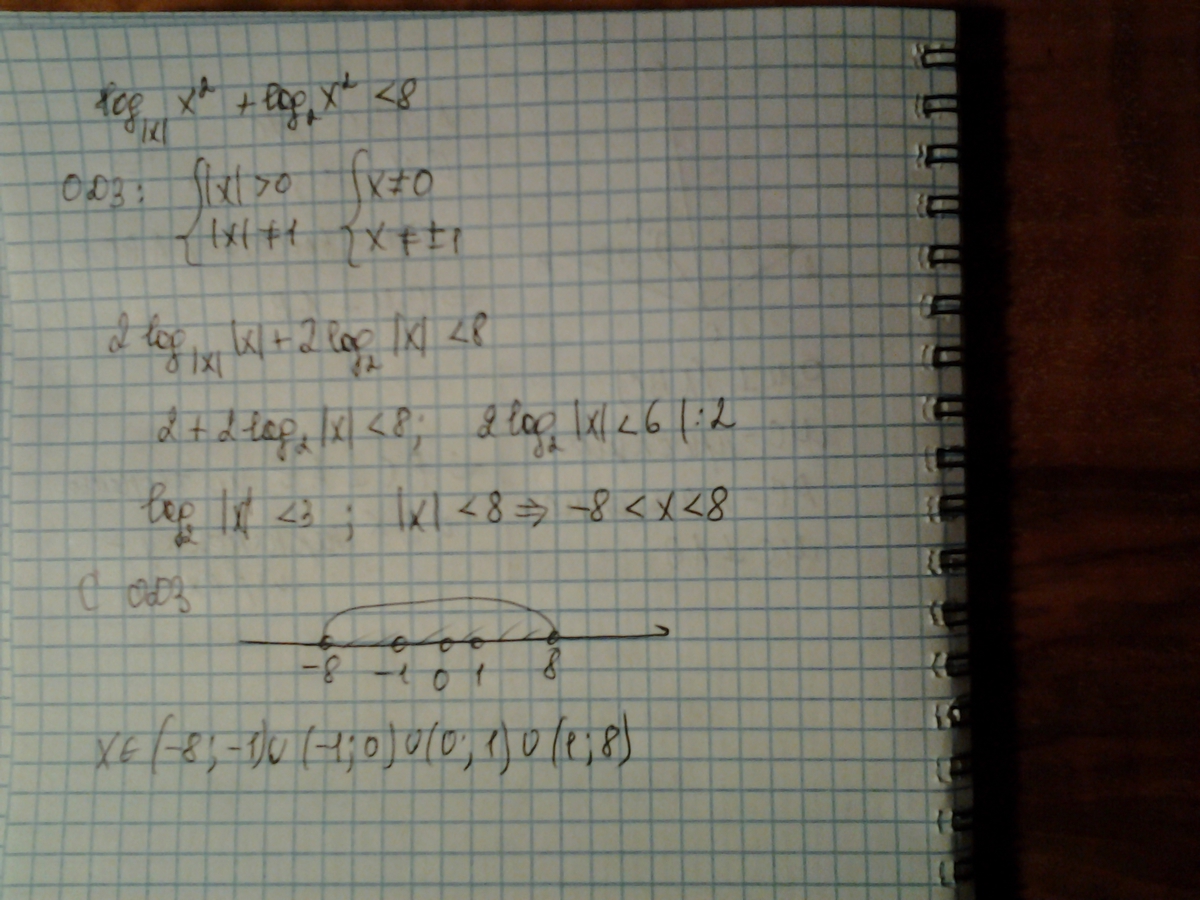 log_|x| x² + log₂ x² < 8
ОДЗ: { |x| > 0 { x ≠ 0
{ |x| ≠ 1 { x ≠ ±1
2 log_|x| |x| + 2 log₂ |x| < 8
2 + 2 log₂ |x| < 8; 2 log₂ |x| < 6 | : 2
log₂ |x| < 3 ; |x| < 8 ⇒ -8 < x < 8
С ОДЗ
-8 -1 0 1 8
x ∈ (-8; -1) ∪ (-1; 0) ∪ (0; 1) ∪ (1; 8)